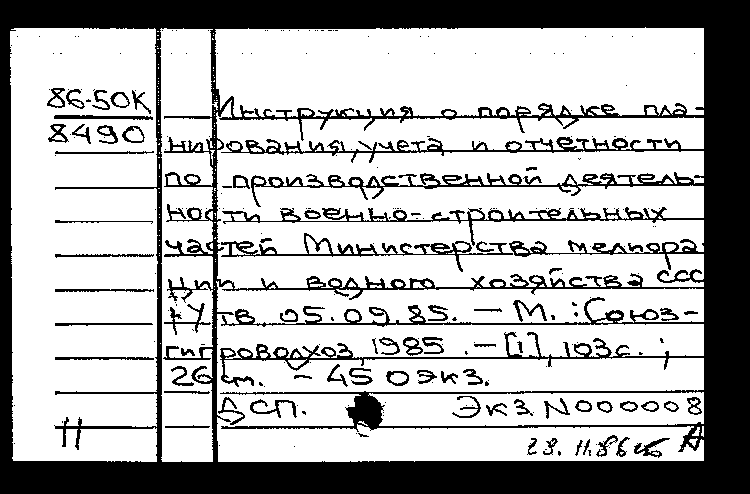 86-50К
8490
Инструкция о порядке пла-
нирования, учета и отчетности
по производственной деятель-
ности военно-строительных
частей Министерства мелиора-
ции и водного хозяйства ССС
Утв. 05.09.85. — М. : Союз-
гипроводхоз, 1985. — [1], 103 с. ;
26 см. — 450 экз.
ДСП. Экз N000008
11
29. 11.86